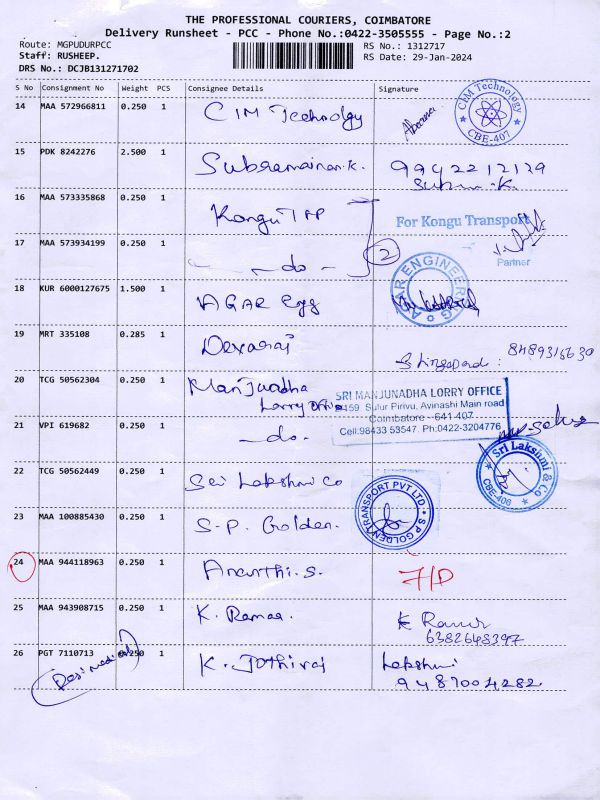 THE PROFESSIONAL COURIERS, COIMBATORE
Delivery Runsheet - PCC - Phone No.:0422-3505555 - Page No.:2
Route: MGPUDURPCC
Staff: RUSHEEP.
DRS No.: DCJB131271702
RS No.: 1312717
RS Date: 29-Jan-2024
S No Consignment No Weight PCS Consignee Details Signature
14 MAA 572966811 0.250 1 CIM Technology
CIM Technology CBE-407
15 PDK 8242276 2.500 1 Subramainan.K. 9942212129
16 MAA 573335868 0.250 1 Kongu TPP
For Kongu Transport
Partner
17 MAA 573934199 0.250 1 -do- 2
18 KUR 6000127675 1.500 1 AGAR Egg
AGAR ENGINEERING
19 MRT 335108 0.285 1 Devaraj 8489315630
20 TCG 50562304 0.250 1 Manjunadha
Lorry Office
SRI MANJUNADHA LORRY OFFICE
159 Sulur Pirivu, Avinashi Main road
Coimbatore - 641 407.
Cell:98433 53547. Ph:0422-3204776
21 VPI 619682 0.250 1 -do-
22 TCG 50562449 0.250 1 Sri Lakshmi Co
Sri Lakshmi & Co CBE-406
23 MAA 100885430 0.250 1 S.P. Golden.
S P GOLDENTRANSPORT PVT LTD
24 MAA 944118963 0.250 1 Ananthi.S. 7/D
25 MAA 943908715 0.250 1 K. Ramas.
6382648397
26 PGT 7110713 0.250 1 K. Jothiraj Lakshmi
9487004282